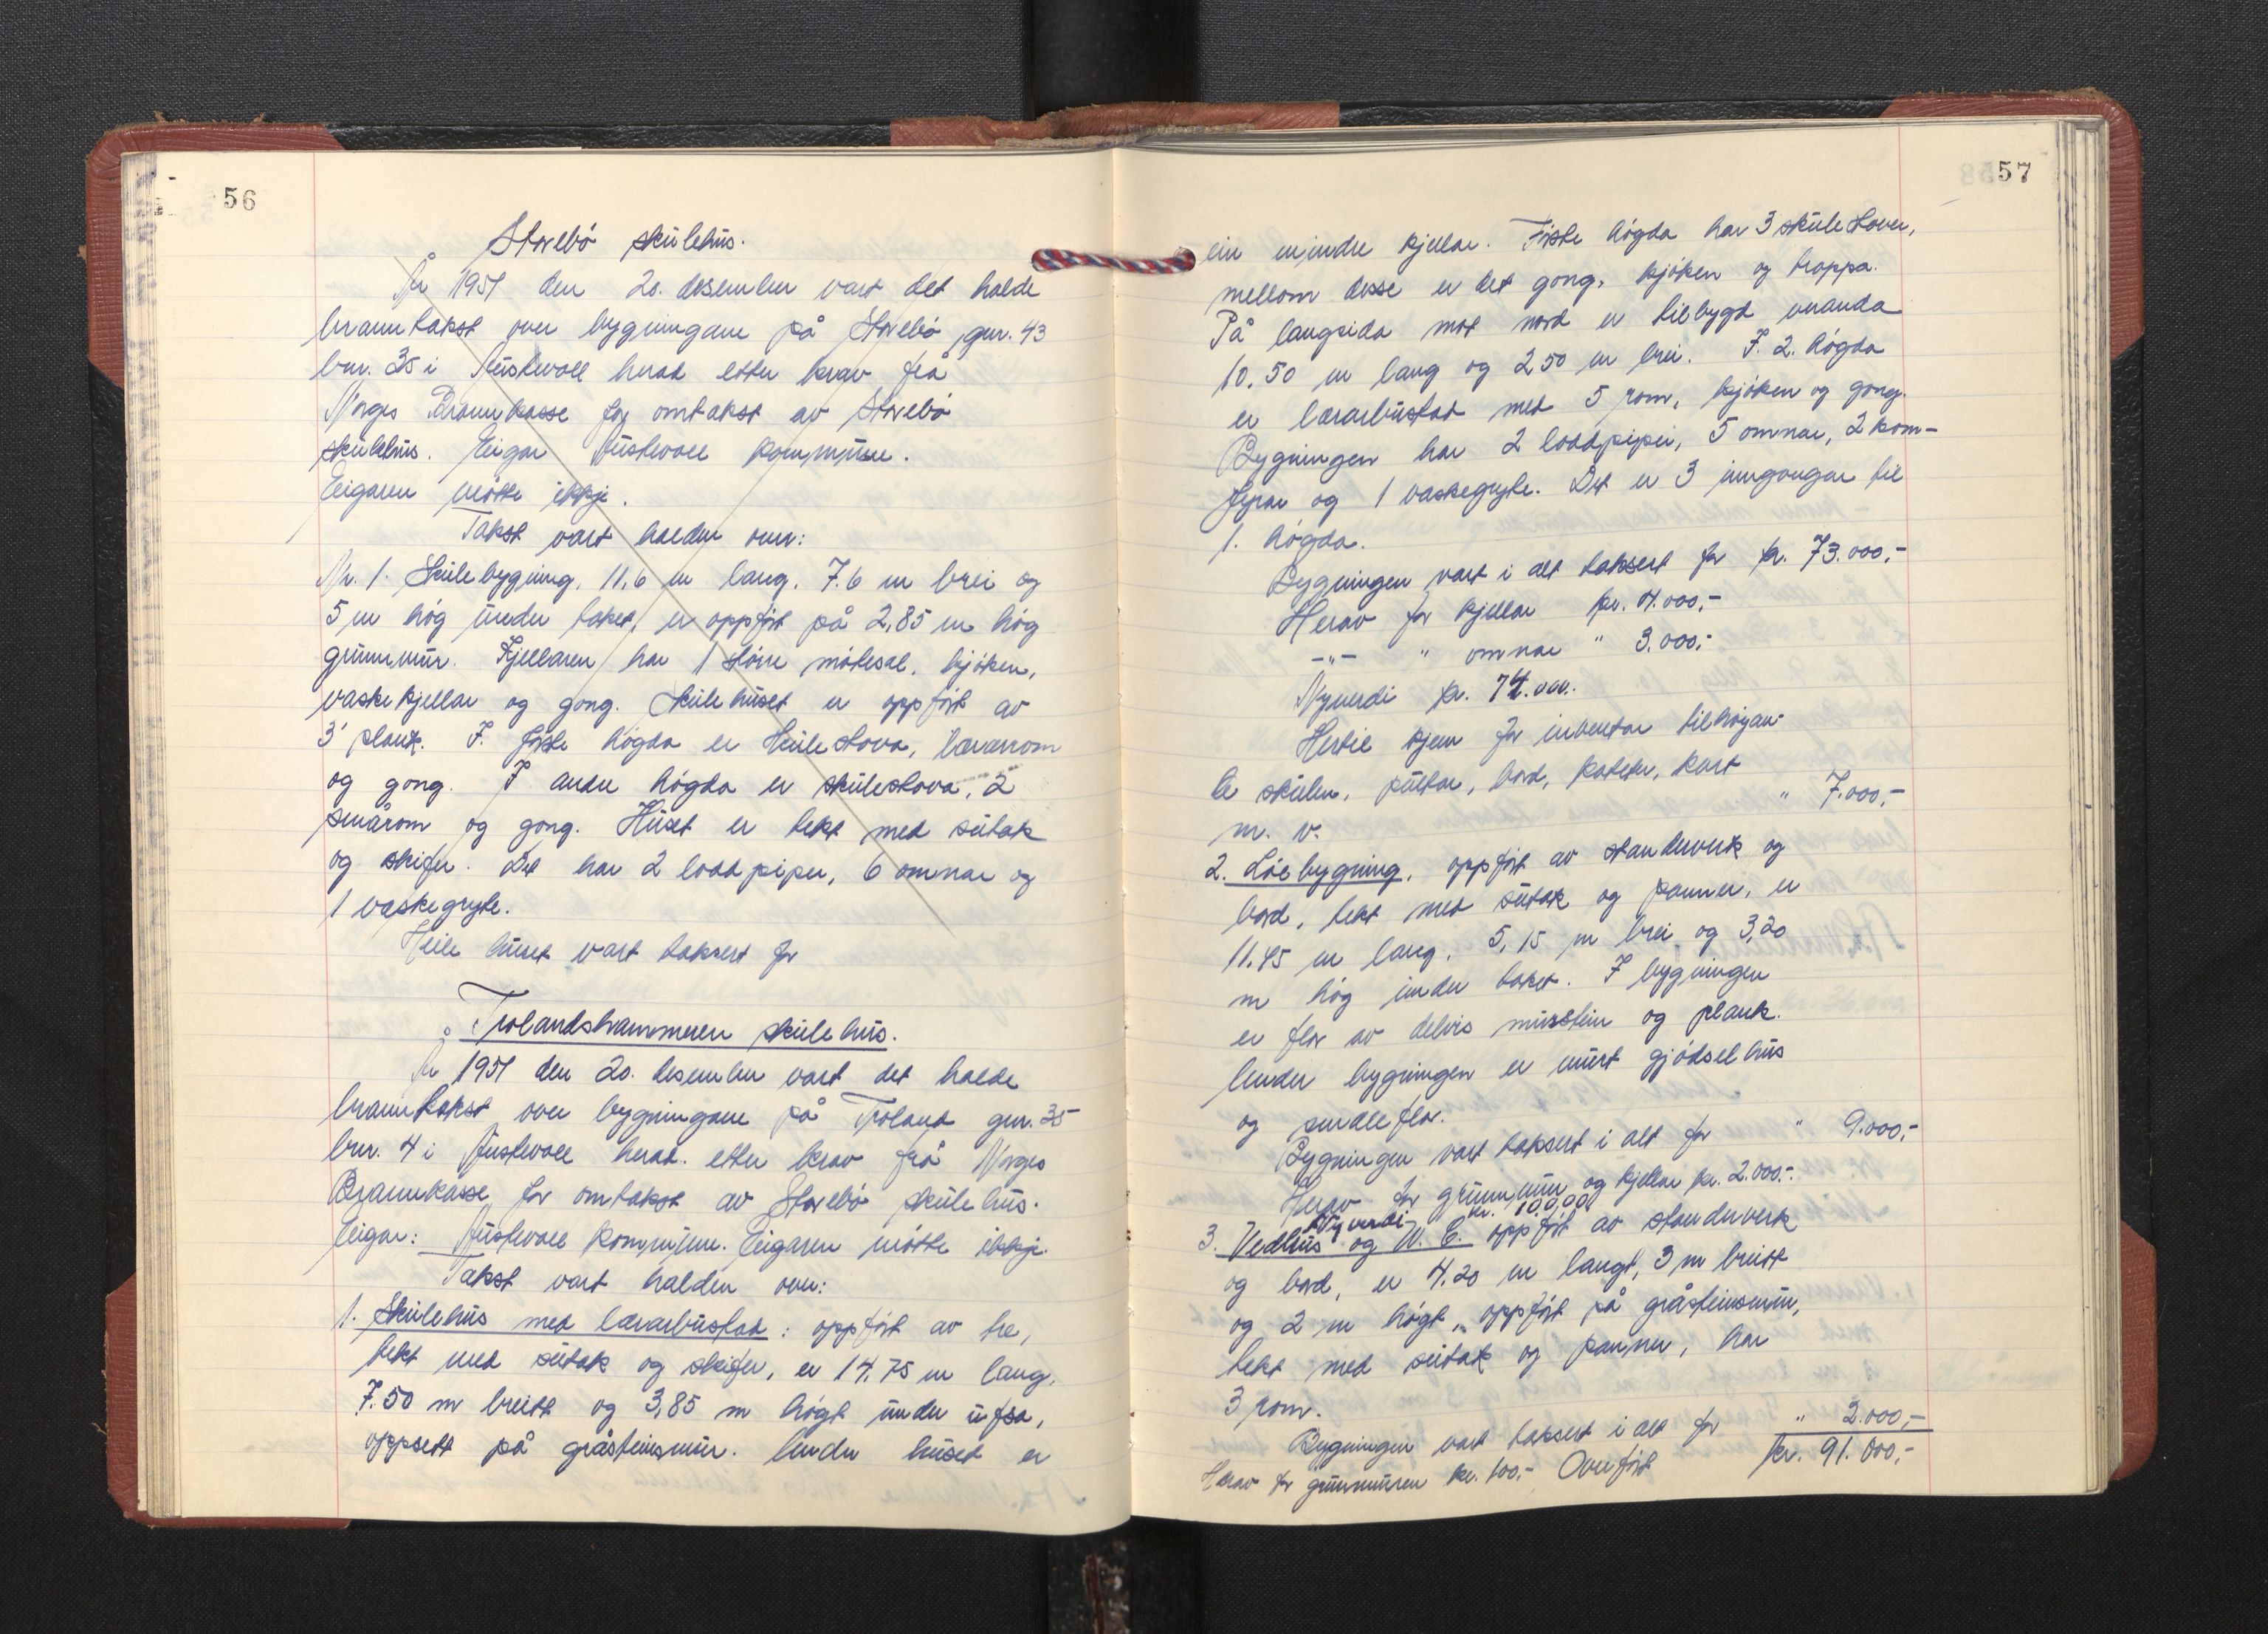 56
Storebö skülehüs.
År 1951 den 20. desember vart det halde
branntakst over bygningane på Storebö gnr. 43
bnr. 35 i Austevoll herad etter krav frå
Norges Brannkasse for omtakst av Storebö
skülehüs. Eigar Austevoll kommüne.
Eigaren mötte ikkje.
Takst vart halden over:
Nr. 1. Skülebygning, 11,6 m lang, 7.6 m brei og
5 m hög ünder taket, er oppfört på 2,85 m hög
grunnmür. Kjellaren har 1 större mötesal, kjöken,
vaskekjellar og gong. Skülehüset er oppfört av
3" plank. I förste högda er skülestova, lærarrom
og gong. I andre högda er skülestova, 2
smårom og gong. Hüset er tekt med sütak
og skifer. Det har 2 loddpiper, 6 omnar og
1 vaskegryte.
Heile hüset vart taksert for
Trolandshammeren skülehüs.
År 1951 den 20. desember vart det halde
branntakst over bygningane på Troland gnr. 35
bnr. 4 i Austevoll herad. etter krav frå Norges
Brannkasse for omtakst av Storebö skülehüs.
Eigar: Austevoll kommüne. Eigaren mötte ikkje.
Takst vart halden over:
1. Skülehüs med lærarbüstad: oppfört av tre,
tekt med sütak og skifer, er 14,75 m lang,
7.50 m breitt og 3,85 m högt ünder üfsa,
oppsett på gråsteinsmür. Under hüset er
57
ein mindre kjellar. Förste högda har 3 skülestover,
mellom desse er det gong, kjöken og troppa.
På langsida mot nord er tilbygd veranda
10.50 m lang og 2,50 m brei. I 2. högda
er lærarbüstad med 5 rom, kjöken og gong.
Bygningen har 2 loddpiper, 5 omnar, 2 kom-
fyrar og 1 vaskegryte. Det er 3 inngongar til
1. högda.
Bygningen vart i alt taksert for kr. 73.000,-
Herav for kjellar kr. 4.000,-
-"- " omnar " 3.000,-
Nyverdi kr. 74.000.
Hertil kjem for inventar tilhöyan-
de skülen, pültar, bord, kateter, kart
m. v. " 7.000,-
2. Löebygning, oppfört av standerverk og
bord, tekt med sütak og panner, er
11.45 m lang, 5,15 m brei og 3,20
m hög ünder taket. I bygningen
er flor av delvis mürstein og plank.
Under bygningen er mürt gjödselhüs
og smaleflor.
Bygningen vart taksert i alt for " 9.000,-
Herav for grunnmür og kjellar kr. 2.000,-.
Nyverdi kr. 10.000
3. Vedhüs og W. C. oppfört av standerverk
og bord, er 4.20 m langt, 3 m breitt
og 2 m högt, oppfört på gråsteinsmür,
tekt med sütak og panner, har
3 rom.
Bygningen vart taksert i alt for " 2.000,-
Herav for grunnmüren kr. 100,- Överfört kr. 91.000,-